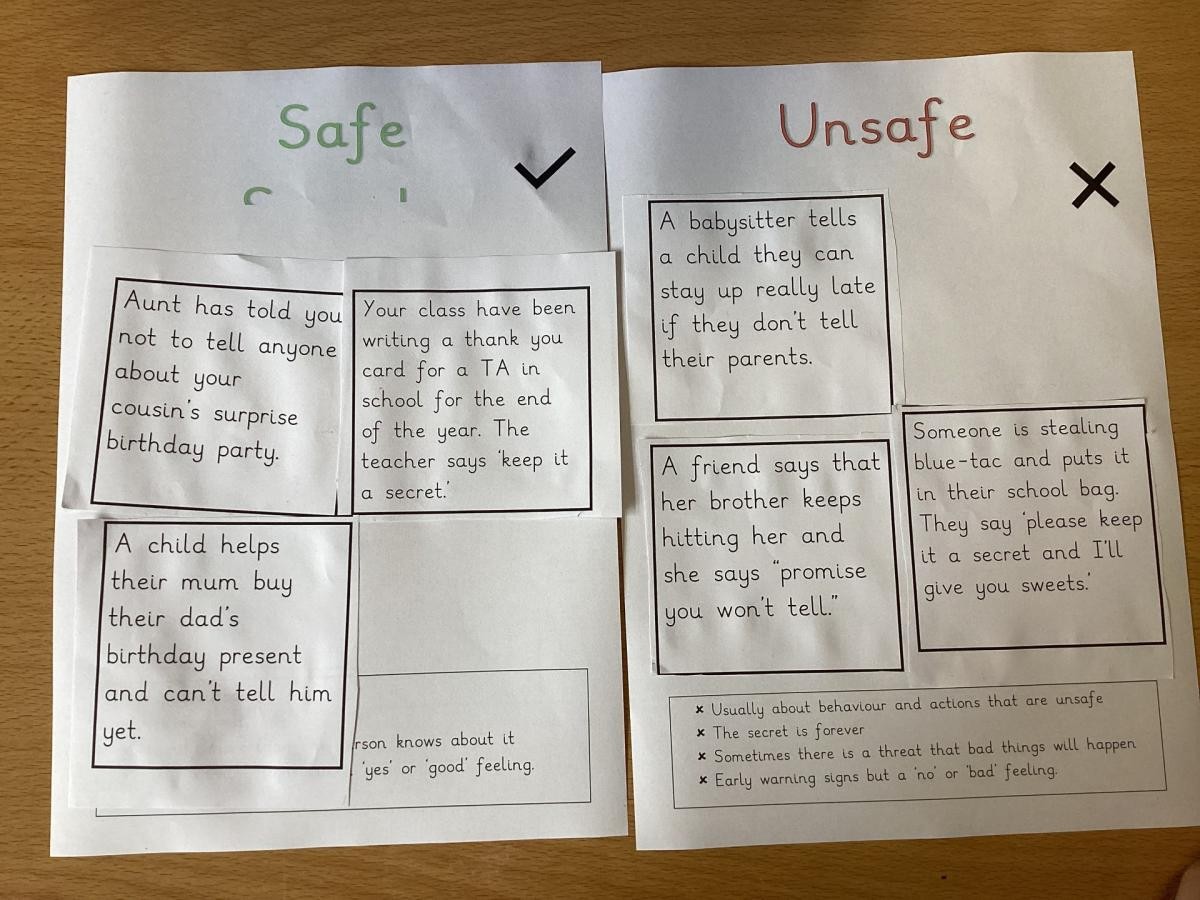 Safe
Aunt has told you
not to tell anyone
about your
cousin's surprise
birthday party.
Your class have been
writing a thank you
card for a TA in
school for the end
of the year. The
teacher says 'keep it
a secret.'
A child helps
their mum buy
their dad's
birthday present
and can't tell him
yet.
knows about it
'yes' or 'good' feeling.
Unsafe
A babysitter tells
a child they can
stay up really late
if they don't tell
their parents.
A friend says that
her brother keeps
hitting her and
she says "promise
you won't tell."
Someone is stealing
blue-tac and puts it
in their school bag.
They say 'please keep
it a secret and I'll
give you sweets.'
× Usually about behaviour and actions that are unsafe
× The secret is forever
× Sometimes there is a threat that bad things will happen
× Early warning signs but a 'no' or 'bad' feeling.